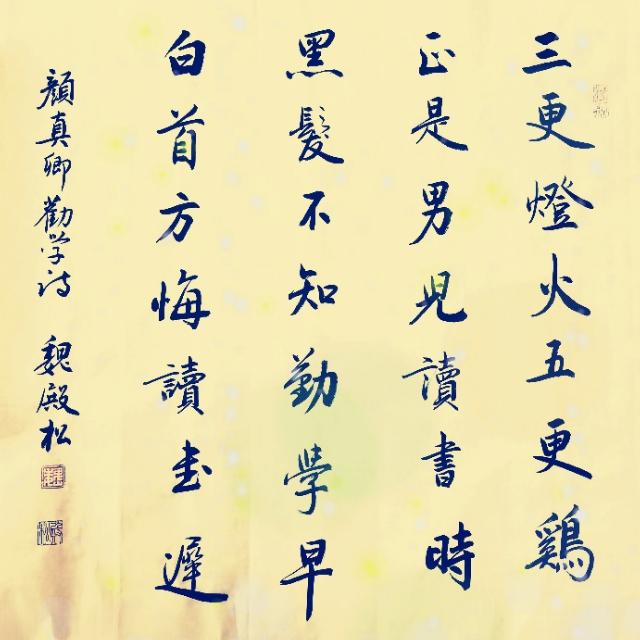 三更燈火五更鷄
正是男児讀書時
黑髮不知勤學早
白首方悔讀书遲
顏真卿勸学诗 魏殿松